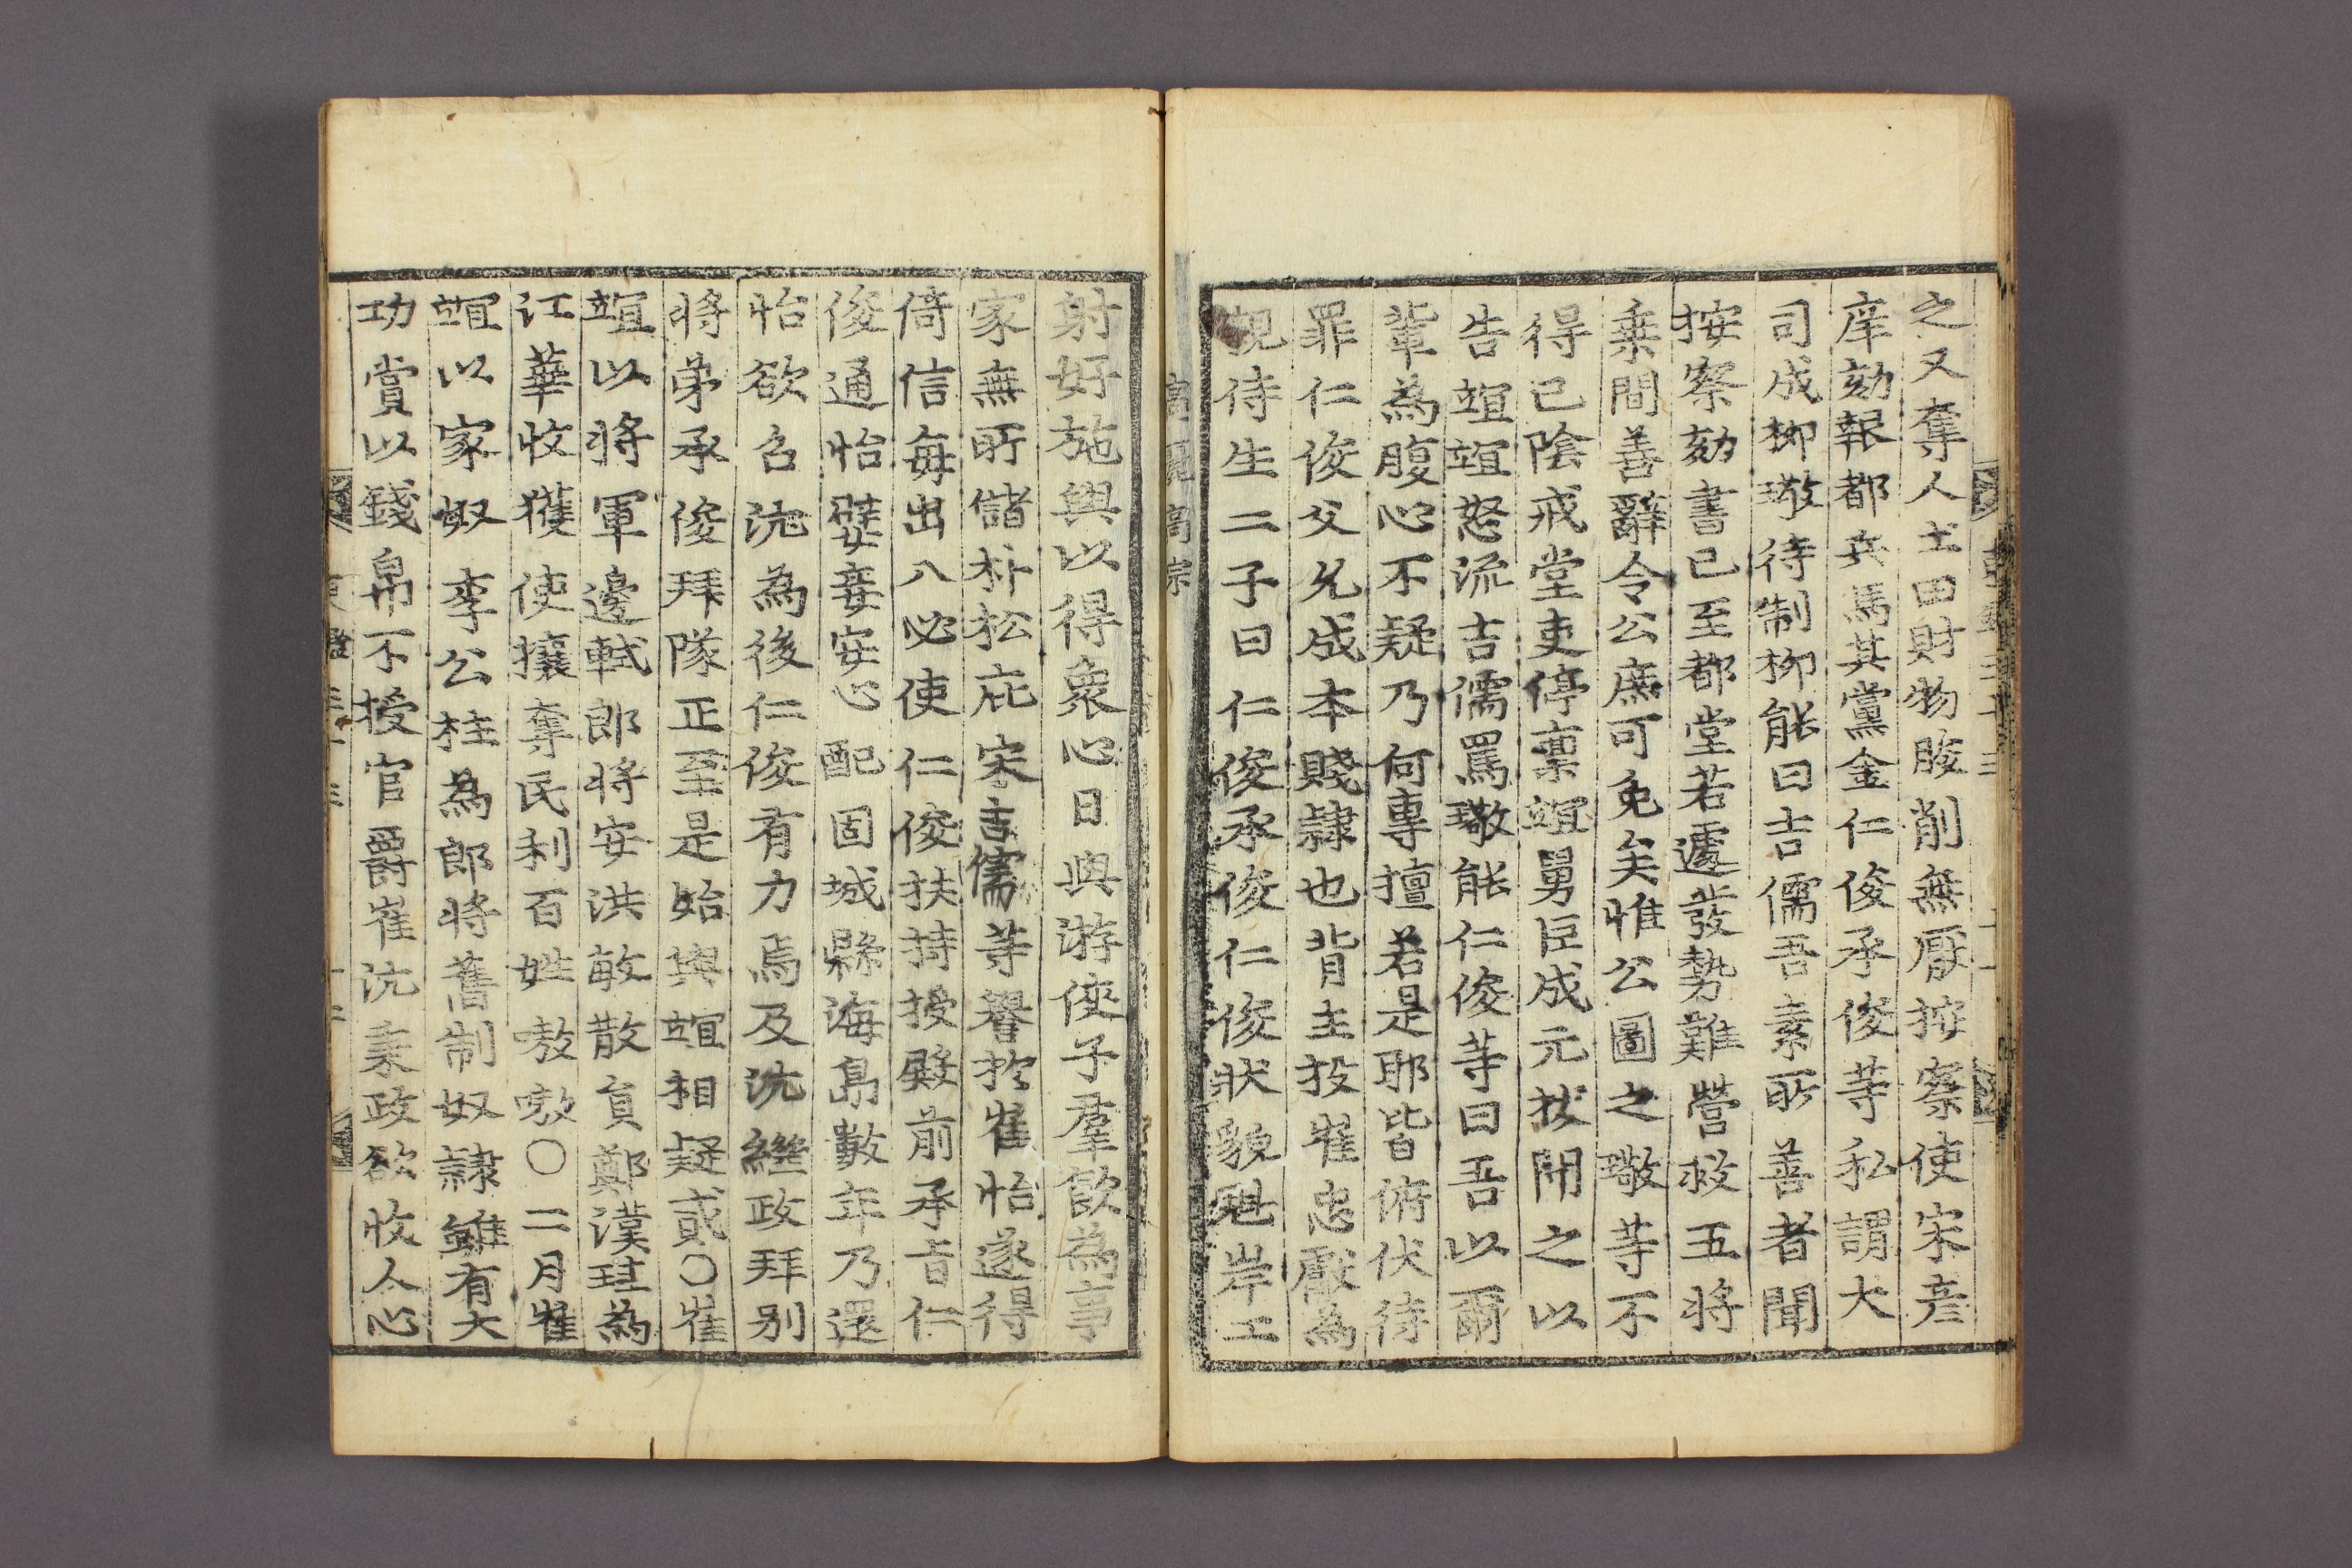 之又奪人土田財物朘削無厭按察使宋彦
庠劾報都兵馬其黨金仁俊承俊等私謂大
司成柳璥待制柳能曰吉儒吾素所善者聞
按察劾書已至都堂若遽發勢難營救五將
乗間善辭令公庶可免矣惟公圖之璥等不
得已陰戒堂吏停禀竩舅臣成元拔聞之以
告竩竩怒流吉儒罵璥能仁俊等曰吾以爾
軰為腹心不疑乃何專擅若是耶皆俯伏待
罪仁俊父允成本賤隷也背主投崔忠獻為
觀侍生二子曰仁俊承俊仁俊狀貌魁岸工
高麗高宗
射好施與以得衆心日與游俠子羣飮為事
家無所儲朴松庇宋吉儒等譽扵崔怡遂得
倚信每出入必使仁俊扶持授殿前承旨仁
俊通怡嬖妾安心配固城縣海島數年乃還
怡欲召沆為後仁俊有力焉及沆繼政拜別
將弟承俊拜隊正至是始與竩相疑貳○崔
竩以將軍邊軾郎將安洪敏散貟鄭漢珪為
江華收獲使攘奪民利百姓嗷嗷○二月崔
竩以家奴李公柱為郎將舊制奴隷雖有大
功賞以錢帛不授官爵崔沆秉政欲收人心